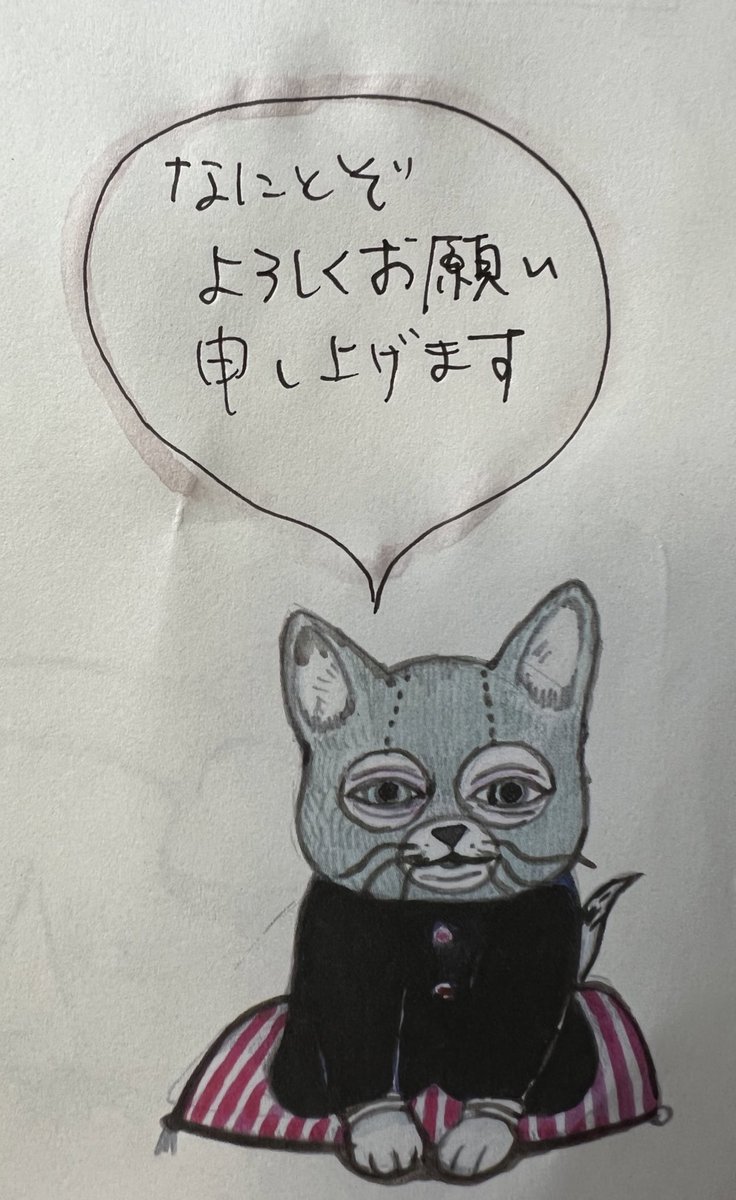 なにとぞ
よろしくお願い
申し上げます